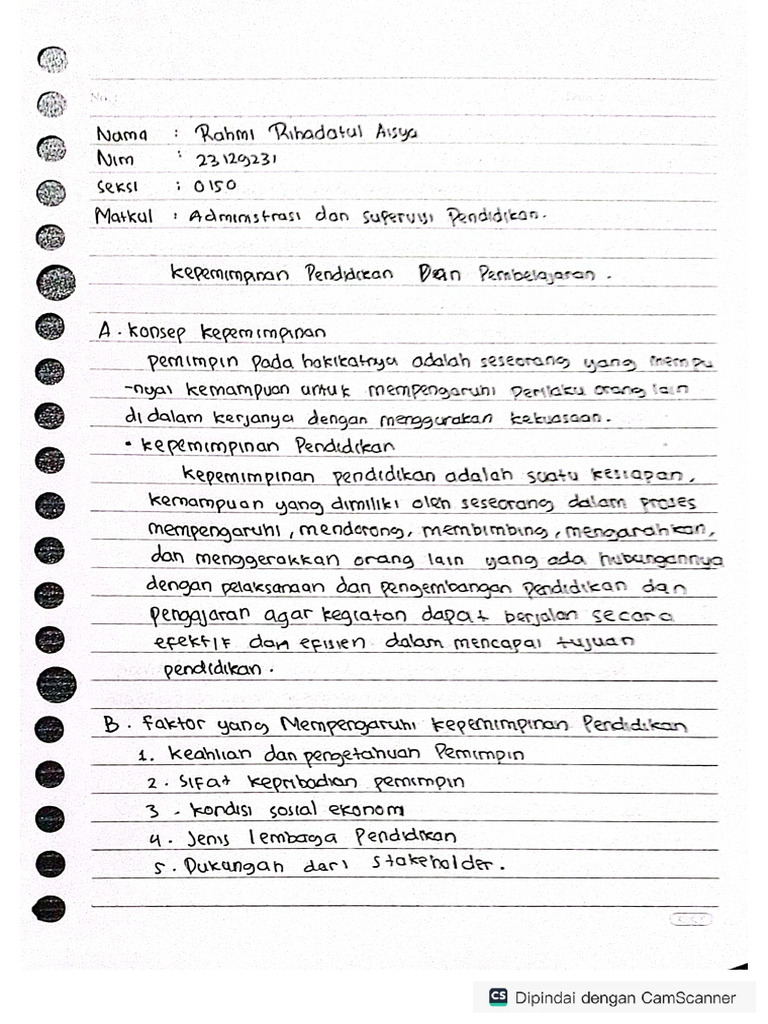 Nama : Rahmi Rihadatul Aisya
Nim : 23129231
Seksi : 0150
Matkul : Administrasi dan Supervisi Pendidikan.
Kepemimpinan Pendidikan Dan Pembelajaran.
A. Konsep kepemimpinan
pemimpin pada hakikatnya adalah seseorang yang mempu
-nyai kemampuan untuk mempengaruhi Perilaku orang lain
di dalam kerjanya dengan menggunakan kekuasaan.
• kepemimpinan Pendidikan
kepemimpinan pendidikan adalah suatu kesiapan,
kemampuan yang dimiliki oleh seseorang dalam proses
mempengaruhi, mendorong, membimbing, mengarahkan,
dan menggerakkan orang lain yang ada hubungannya
dengan pelaksanaan dan pengembangan Pendidikan dan
pengajaran agar kegiatan dapat berjalan secara
efektif dan efisien dalam mencapai tujuan
pendidikan.
B. Faktor yang Mempengaruhi kepemimpinan Pendidikan
1. keahlian dan pengetahuan Pemimpin
2. Sifat kepribadian pemimpin
3. kondisi sosial ekonomi
4. Jenis lembaga Pendidikan
5. Dukungan dari stakeholder.
CS Dipindai dengan CamScanner